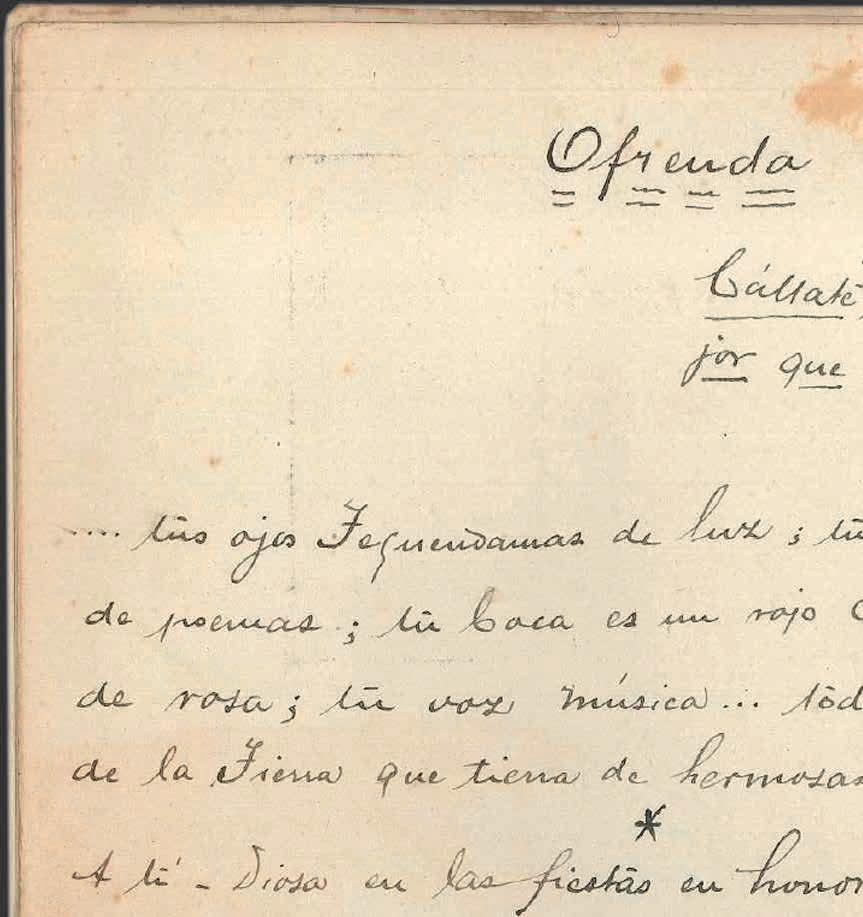 Ofrenda
Cállate,
jor que
.... tus ojos Tequendamas de luz ; tu
de poemas ; tu boca es un rojo
de rosa ; tu voz música ... tod
de la Tierra que tierra de hermosas
*
A tí - Diosa en las fiestas en honor